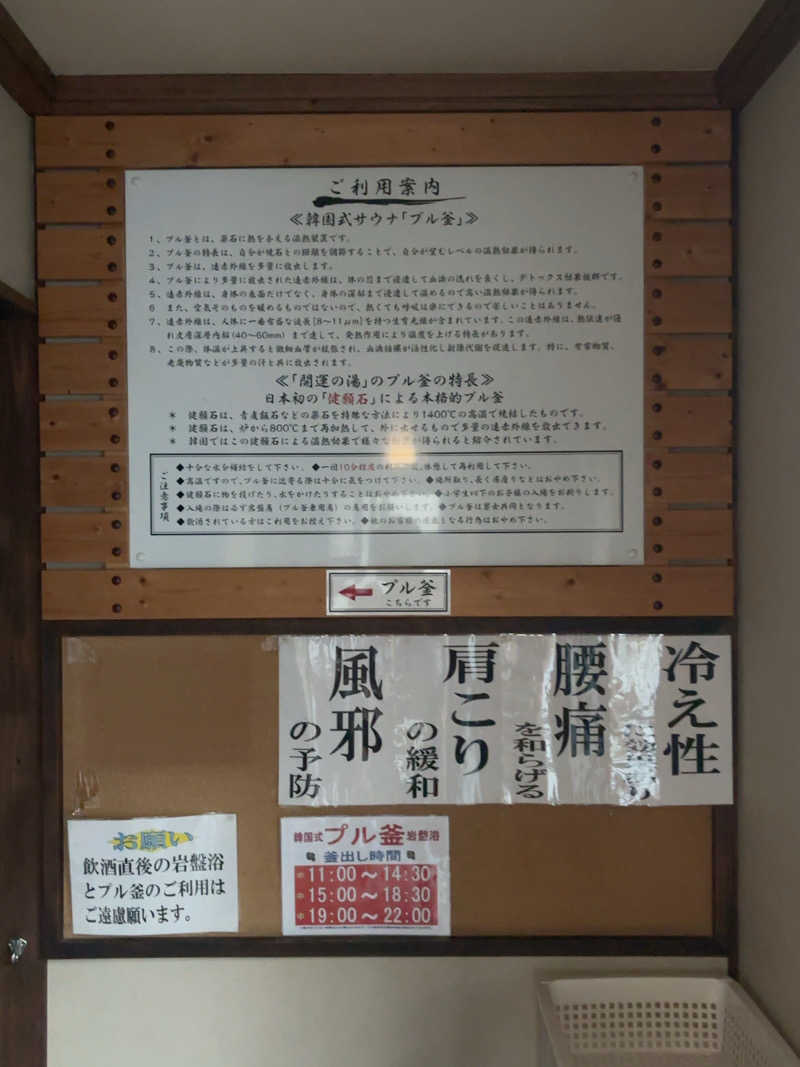 ご利用案内
≪韓国式サウナ「プル釜」≫
1、プル釜とは、薬石に熱を与える温熱装置です。
2、プル釜の特長は、自分が焼石との距離を調節することで、自分が望むレベルの温熱効果が得られます。
3、プル釜は、遠赤外線を多量に放出します。
4、プル釜により多量に放出された遠赤外線は、体の芯まで浸透して血液の流れを良くし、デトックス効果抜群です。
5、遠赤外線は、身体の表面だけでなく、身体の深部まで浸透して温めるので高い温熱効果が得られます。
6 また、空気そのものを暖めるものではないので、熱くても呼吸は楽にできるので苦しいことはありません。
7、遠赤外線は、人体に一番有益な波長[8〜11μm]を持つ生育光線が含まれています。この遠赤外線は、熱伝達が優
れ皮膚深層内部(40〜60mm)まで達して、発熱作用により温度を上げる特長があります。
8、この際、体温が上昇すると微細血管が拡張され、血液循環が活性化し新陳代謝を促進します。特に、有害物質、
老廃物質などが多量の汗と共に放出されます。
≪「開運の湯」のプル釜の特長≫
日本初の「健願石」による本格的プル釜
＊ 健願石は、青麦飯石などの薬石を特殊な方法により1400℃の高温で焼結したものです。
＊ 健願石は、炉から800℃まで再加熱して、外に出せるもので多量の遠赤外線を放出できます。
＊ 韓国ではこの健願石による温熱効果で様々な が得られると紹介されています。
ご注意事項
◆十分な水分補給をして下さい。◆一回10分程度の 、休憩して再利用して下さい。
◆高温ですので、プル釜に近寄る際は十分に気をつけて下さい。◆場所取り、長く居座りなどはおやめ下さい。
◆健願石に物を投げたり、水をかけたりすることはおやめ下さい。◆小学生以下のお子様の入場をお断りします。
◆入場の際は必ず岩盤着(プル釜兼用着)の着用をお願いします。◆プル釜は男女共同となります。
◆飲酒されている方はご利用をお控え下さい。◆他のお客様の迷惑となる行為はおやめ下さい。
プル釜
こちらです
冷え性
腰痛
を和らげる
肩こり
の緩和
風邪
の予防
お願い
飲酒直後の岩盤浴
とプル釜のご利用は
ご遠慮願います。
韓国式プル釜岩盤浴
釜出し時間
11:00〜14:30
15:00〜18:30
19:00〜22:00